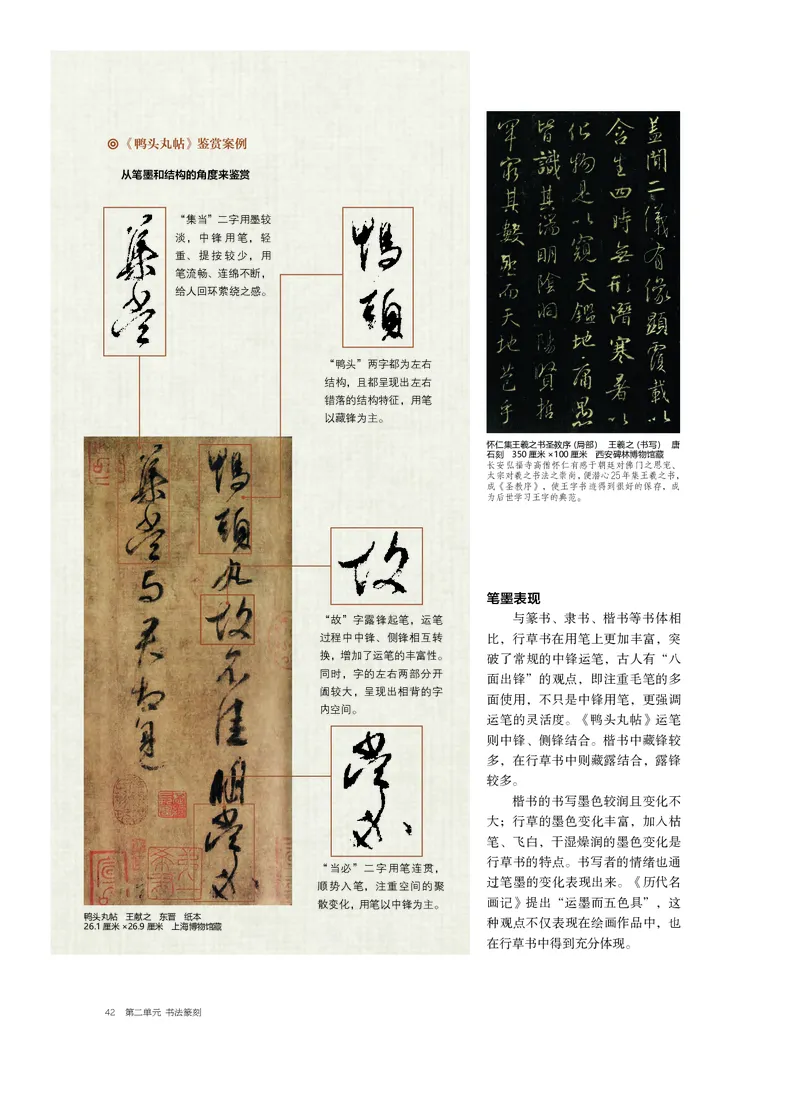 ◎《鸭头丸帖》鉴赏案例
从笔墨和结构的角度来鉴赏
集當
“集当”二字用墨较
淡，中锋用笔，轻
重、提按较少，用
笔流畅、连绵不断，
给人回环萦绕之感。
鴨頭
“鸭头”两字都为左右
结构，且都呈现出左右
错落的结构特征，用笔
以藏锋为主。
故
“故”字露锋起笔，运笔
过程中中锋、侧锋相互转
换，增加了运笔的丰富性。
同时，字的左右两部分开
阖较大，呈现出相背的字
内空间。
當必
“当必”二字用笔连贯，
顺势入笔，注重空间的聚
散变化，用笔以中锋为主。
鴨頭丸故不佳明當必
集當与君相見
鸭头丸帖　王献之　东晋　纸本
26.1 厘米 ×26.9 厘米　上海博物馆藏
蓋聞二儀有像顯覆載以
含生四時無形潛寒暑以
化物是以窺天鑑地庸愚
皆識其端明陰洞陽賢哲
罕窮其數然而天地苞乎
怀仁集王羲之书圣教序（局部）　王羲之（书写）　唐
石刻　350 厘米 ×100 厘米　西安碑林博物馆藏
长安弘福寺高僧怀仁有感于朝廷对佛门之恩宠、
太宗对羲之书法之崇尚，便潜心 25 年集王羲之书，
成《圣教序》，使王字书迹得到很好的保存，成
为后世学习王字的典范。
笔墨表现
与篆书、隶书、楷书等书体相
比，行草书在用笔上更加丰富，突
破了常规的中锋运笔，古人有“八
面出锋”的观点，即注重毛笔的多
面使用，不只是中锋用笔，更强调
运笔的灵活度。《鸭头丸帖》运笔
则中锋、侧锋结合。楷书中藏锋较
多，在行草书中则藏露结合，露锋
较多。
楷书的书写墨色较润且变化不
大；行草的墨色变化丰富，加入枯
笔、飞白，干湿燥润的墨色变化是
行草书的特点。书写者的情绪也通
过笔墨的变化表现出来。《历代名
画记》提出“运墨而五色具”，这
种观点不仅表现在绘画作品中，也
在行草书中得到充分体现。
42　第二单元 书法篆刻